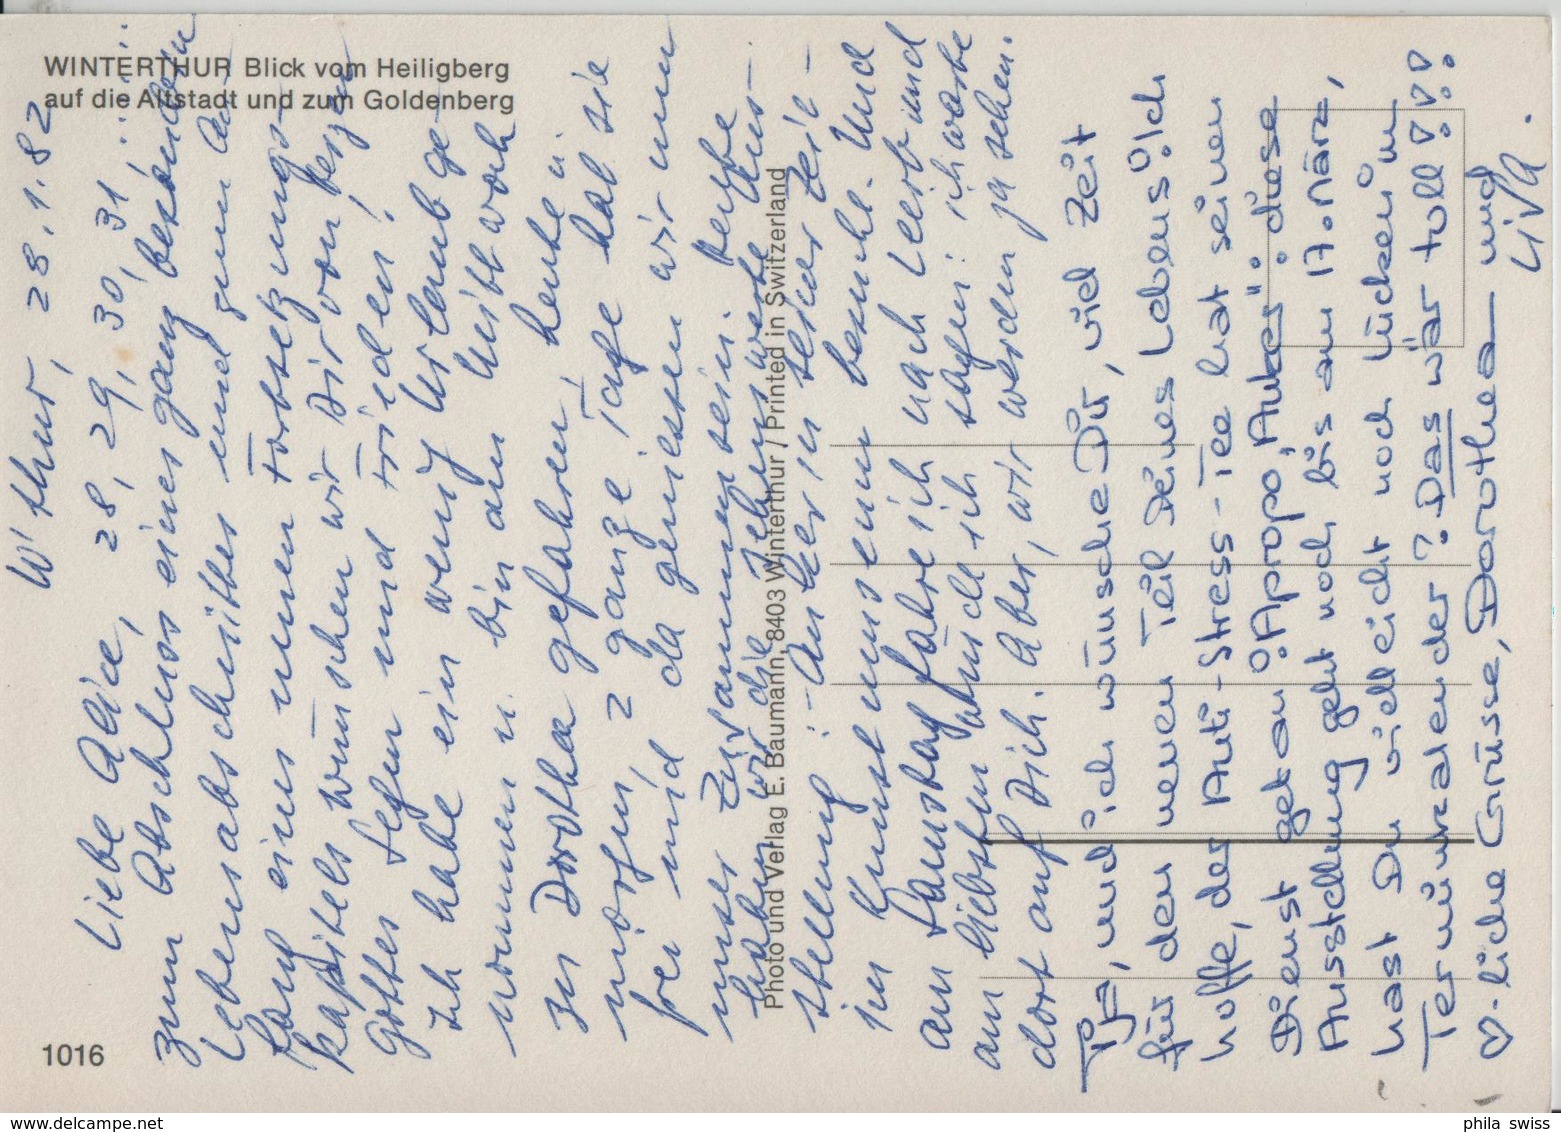 WINTERTHUR Blick vom Heiligberg
auf die Altstadt und zum Goldenberg
1016
Photo und Verlag E. Baumann, 8403 Winterthur / Printed in Switzerland
W'thur, 28.1.82
28, 29, 30, 31 ......
Liebe Alice,
zum Abschluss eines ganz besonderen
Lebensabschnittes und zum An-
fang eines neuen Fortsetzungs-
kapitels wünschen wir Dir von Herzen
Gottes Segen und Frieden!
Ich habe ein wenig Urlaub ge-
nommen u. bin am Mittwoch
zu Dorothea gefahren, heute u.
morgen, 2 ganze Tage hat sie
frei und da geniessen wir nun
unser Zusammensein. Heute
haben wir die Sehenswerte Aus-
stellung: - Anker in seiner Zeit -
im Kunstmuseum besucht. Und
am Samstag fahre ich nach
am liebsten würde ich sagen: ich warte
dort auf Dich. Aber, wir werden ja sehen.
Tja, und ich wünsche Dir, viel Zeit
für den neuen Teil Deines Lebens. Ich
hoffe, der Anti-Stress-Tee hat seinen
Dienst getan. Apropo, Anker": diese
Ausstellung geht noch bis am 17. März,
hast Du vielleicht noch Lücken im
Terminkalender? Das wär toll!!!
♡-liche Grüsse, Dorothea und